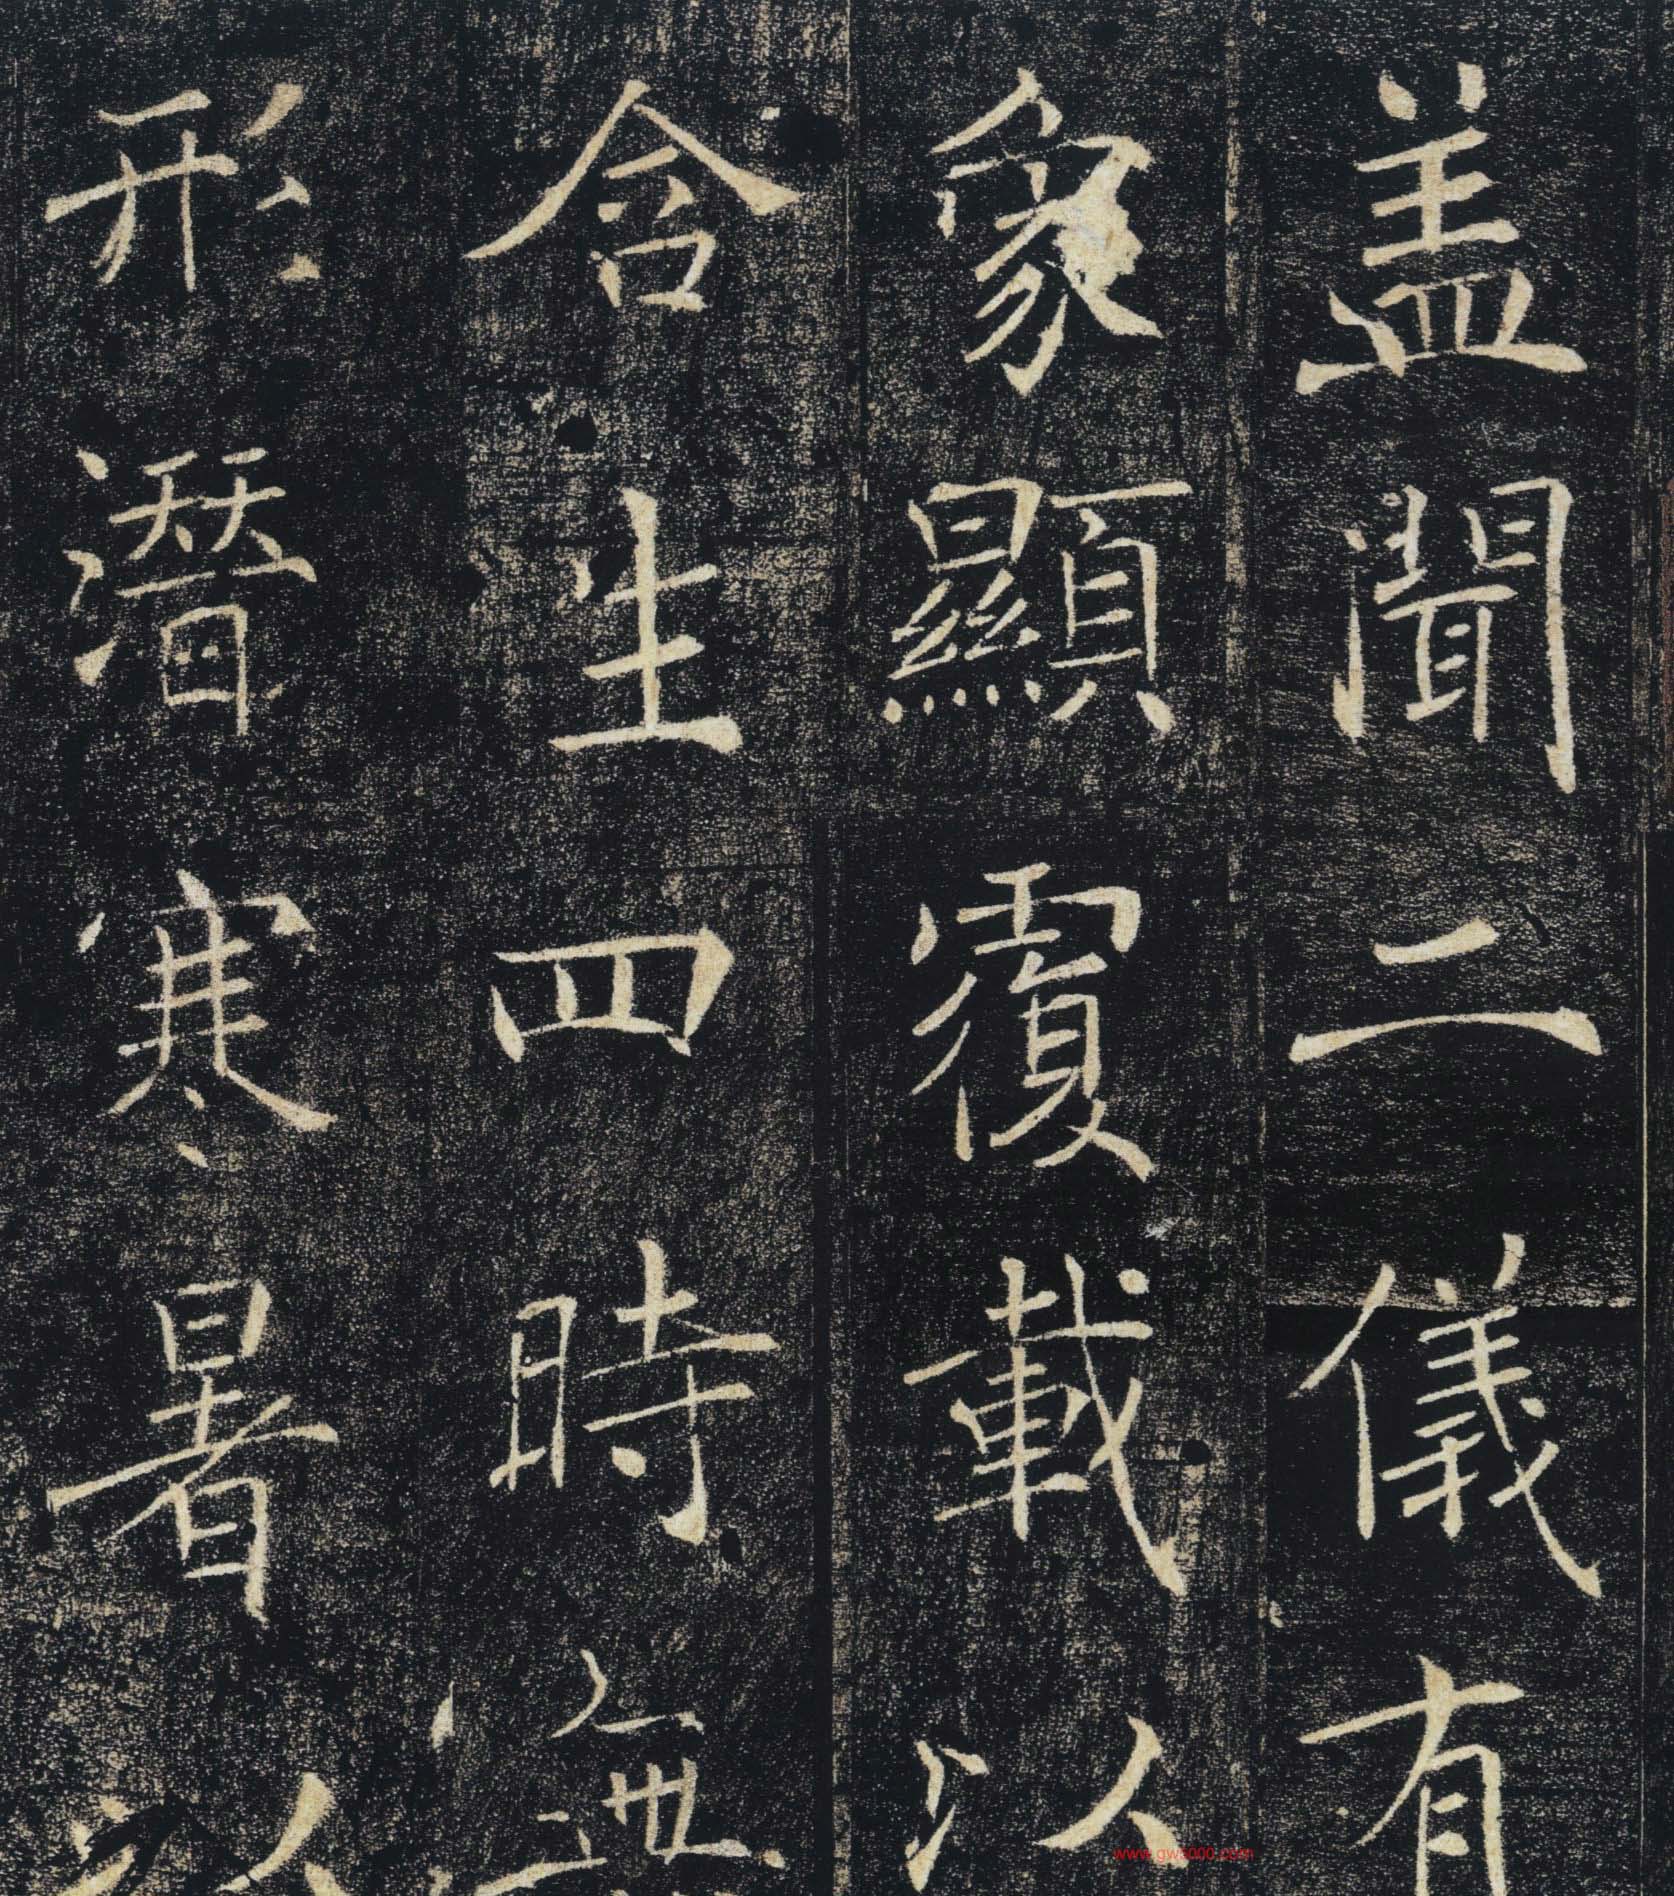 盖聞二儀有
象顯覆載以
含生四時無
形潛寒暑以
www.gw3000.com